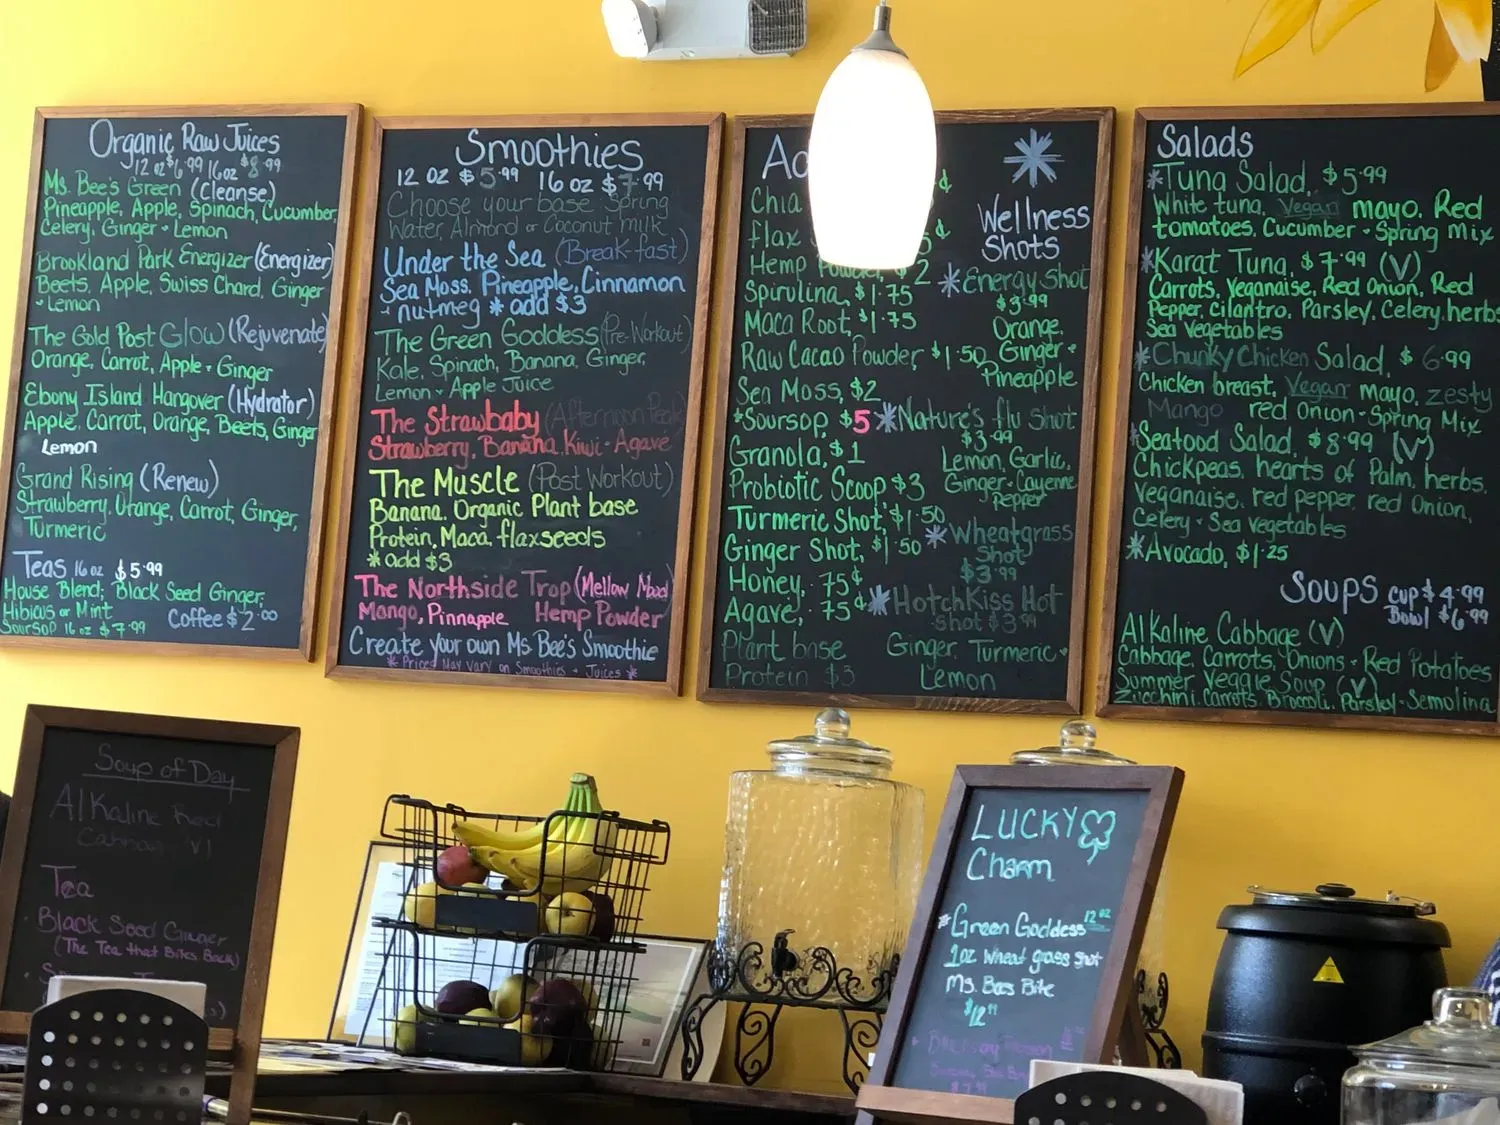 Organic Raw Juices
12 oz $6.99 16oz $8.99
Ms. Bee's Green (Cleanse)
Pineapple, Apple, Spinach, Cucumber,
Celery, Ginger + Lemon
Brookland Park Energizer (Energizer)
Beets, Apple, Swiss Chard, Ginger
+ Lemon
The Gold Post Glow (Rejuvenate)
Orange, Carrot, Apple + Ginger
Ebony Island Hangover (Hydrator)
Apple, Carrot, Orange, Beets, Ginger
Lemon
Grand Rising (Renew)
Strawberry, Orange, Carrot, Ginger,
Turmeric
Teas 16 oz $5.99
House Blend, Black Seed Ginger,
Hibicus or Mint
Soursop 16 oz $7.99 Coffee $2.00
Smoothies
12 oz $5.99 16 oz $7.99
Choose your base Spring
Water, Almond or Coconut milk
Under the Sea (Break-fast)
Sea Moss, Pineapple, Cinnamon
+ nutmeg * add $3
The Green Goddess (Pre-Workout)
Kale, Spinach, Banana, Ginger,
Lemon + Apple Juice
The Strawbaby (Afternoon Peak)
Strawberry, Banana, Kiwi + Agave
The Muscle (Post Workout)
Banana, Organic Plant base
Protein, Maca, flaxseeds
* add $3
The Northside Trop (Mellow Mood)
Mango, Pinnapple Hemp Powder
Create your own Ms. Bee's Smoothie
* Prices May vary on Smoothies + Juices *
Chia
flax
Hemp Powder $2
Spirulina, $1.75
Maca Root, $1.75
Raw Cacao Powder, $1.50
Sea Moss $2
*Soursop $5
Granola, $1
Probiotic Scoop $3
Turmeric Shot, $1.50
Ginger Shot, $1.50
Honey, 75¢
Agave, 75¢
Plant base
Protein $3
Wellness
Shots
*Energy Shot
$3.99
Orange,
Ginger +
Pineapple
*Nature's flu Shot
$3.99
Lemon, Garlic,
Ginger + Cayenne
Pepper
*Wheatgrass
Shot
$3.99
*Hotchkiss Hot
Shot $3.99
Ginger, Turmeric +
Lemon
Salads
*Tuna Salad, $5.99
White tuna, Vegan mayo, Red
tomatoes, Cucumber + Spring Mix
*Karat Tuna, $7.99 (V)
Carrots, Veganaise, Red Onion, Red
Pepper, cilantro, Parsley, Celery, herbs
Sea Vegetables
*Chunky Chicken Salad, $6.99
Chicken breast, Vegan mayo, zesty
Mango red onion + Spring Mix
*Seafood Salad, $8.99 (V)
Chickpeas, hearts of Palm, herbs,
Veganaise, red pepper, red Onion,
Celery + Sea vegetables
*Avocado, $1.25
Soups Cup $4.99
Bowl $6.99
Alkaline Cabbage (V)
Cabbage, Carrots, Onions + Red Potatoes
Summer Veggie Soup (V)
Zucchini, Carrots, Broccoli, Parsley + Semolina
Soup of Day
Alkaline Red
Tea
Black Seed Ginger
(The Tea that Bites Back)
LUCKY
Charm
*Green Goddess 12 oz
1oz wheat grass shot
Ms. Bees Bite
$12.99